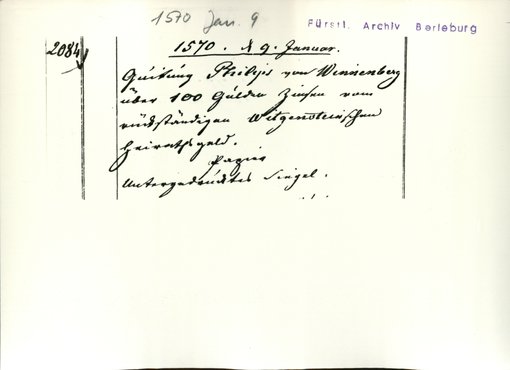 1570 Jan. 9
Fürstl. Archiv Berleburg
2084
1570. d 9. Januar.
Quittung Philips von Winnenberg
über 100 Gulden Zinsen vom
rückständigen Witgensteinischen
Heirathsgeld.
Papier
Untergedrücktes Siegel.